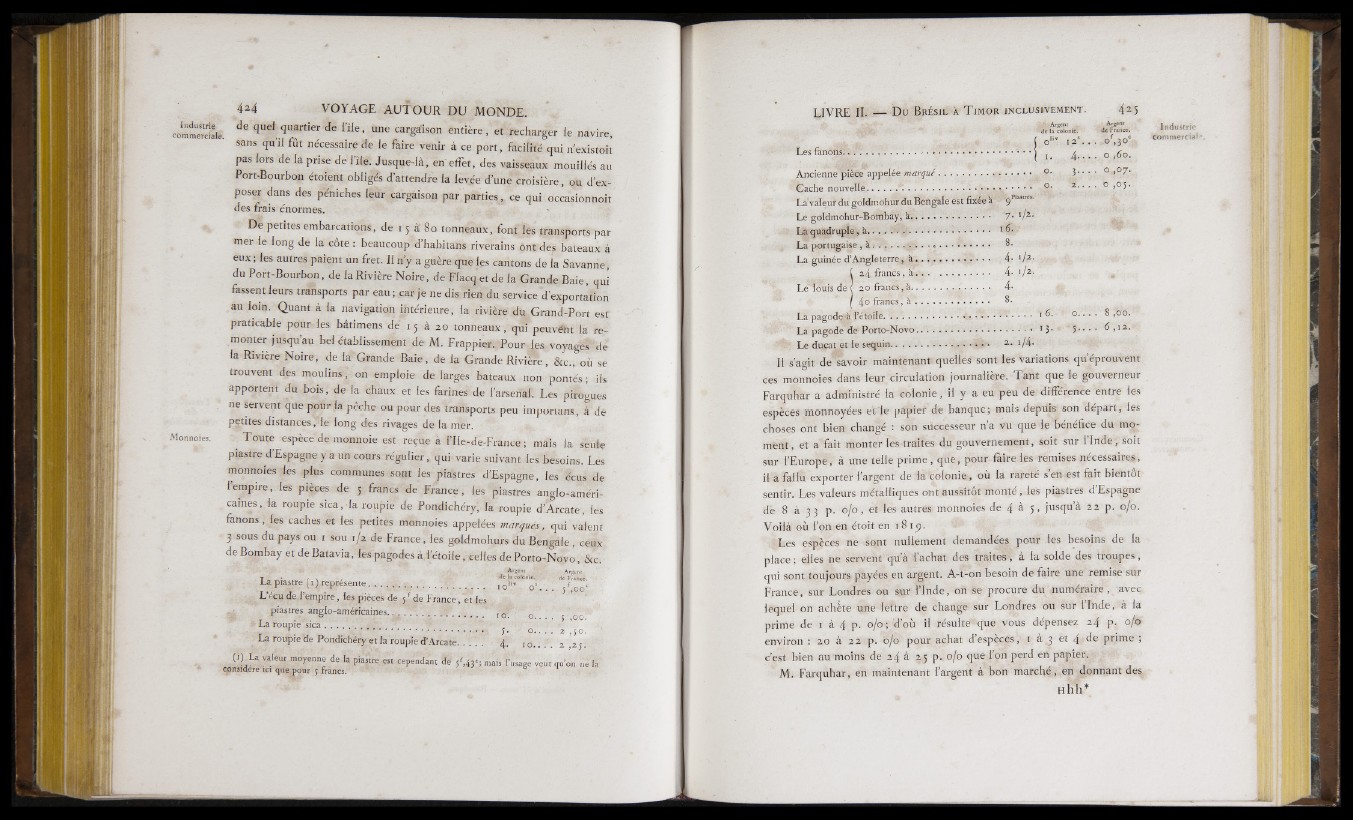 424 VOYAGE AUTOUR DU MONDE.
Industrie commerciale.
de quel quartier de l'île, une cargaison entière, et recharger le navire,
sans qu'il fût nécessaire de le faire venir à ce port, facilité qui n'existoit
pas lors de la prise de l'île. Jusque-là, en effet, des vaisseaux mouillés au
Port-Bourbon étoient obligés d'attendre la levée d'une croisière, ou d'ex-
poser dans des péniches leur cargaison par parties, ce qui occasionnoit
des frais énormes.
De petites embarcations, de 15 à 80 tonneaux, font les transports par
mer le long de la côte : beaucoup d'habitans riverains ont des bateaux à
eux; les autres paient un fret. Il n'y a guère que les cantons de la Savanne,
du Port-Bourbon, de la Rivière Noire, de Flacq et de la Grande Baie, qui
fassent leurs transports par eau; car je ne dis rien du service d'exportation
au loin. Quant à la navigation intérieure, la rivière du Grand-Port est
praticable pour les bâtimens de 15 à 20 tonneaux, qui peuvent la re-
monter jusqu'au bel établissement de M. Frappier. Pour les voyages de
la Rivière Noire, de la Grande Baie, de la Grande Rivière, &c., où se
trouvent des moulins, on emploie de larges bateaux non pontés; ils
apportent du bois, de la chaux et les farines de l'arsenal. Les pirogues
ne servent que pour la pêche ou pour des transports peu importans, à de
petites distances, le long des rivages de la mer.
Monnoies.
Toute espèce de monnoie est reçue à l'Ile-de-France; mais la seule
piastre d'Espagne y a un cours régulier, qui varie suivant les besoins. Les
monnoies les plus communes sont les piastres d'Espagne, les écus de
l'empire, les pièces de 5 francs de France, les piastres anglo-améri-
caines, la roupie sica, la roupie de Pondichéry, la roupie d'Arcate, les
fanons, les caches et les petites monnoies appelées marques, qui valent
3 sous du pays ou 1 sou 1/2 de France, les goldmohurs du Bengale, ceux
de Bombay et de Batavia, les pagodes à l'étoile, celles de Porto-Novo, &c.
Argent de la colonie. Argent de France.
La piastre (1) représente.................... 10liv 0s... 5f,00c
L'écu de l'empire, les pièces de 5f de France, et les
piastres anglo-américaines................ 10. 0.... 5,00.
La roupie sica.......................... 5. 0.... 2,50.
La roupie de Pondichéry et la roupie d'Arcate..... 4. 10.... 2,25.
(1) La valeur moyenne de la piastre est cependant de 5f,43c; mais l'usage veut qu'on ne la
considère ici que pour 5 francs.
LIVRE II. — DU BRÉSIL À TIMOR INCLUSIVEMENT. 425
Industrie commerciale.
Argent de la colonie. Argent de France.
Les fanons.............................. { 0liv 12s... 0f,30c
{ 1. 4.... 0,60.
Ancienne pièce appelée marqué................ 0. 3.... 0,07.
Cache nouvelle........................... 0. 2.... 0,05.
La valeur du goldmohur du Bengale est fixée à 9piastres
Le goldmohur-Bombay, à.............. 7. 1/2.
La quadruple, à..................... 16.
La portugaise, à.................... 8.
La guinée d'Angleterre, à.............. 4. 1/2.
{ 24 francs, à.............. 4. 1/2.
Le louis de { 20 francs, à.............. 4.
{ 40 francs, à.............. 8.
La pagode à l'étoile........................ 16. 0.... 8,00.
La pagode de Porto-Novo.................... 13. 5.... 6,12.
Le ducat et le sequin................. 2. 1/4.
Il s'agit de savoir maintenant quelles sont les variations qu'éprouvent
ces monnoies dans leur circulation journalière. Tant que le gouverneur
Farquhar a administré la colonie, il y a eu peu de différence entre les
espèces monnoyées et le papier de banque; mais depuis son départ, les
choses ont bien changé : son successeur n'a vu que le bénéfice du mo-
ment, et a fait monter les traites du gouvernement, soit sur l'Inde, soit
sur l'Europe, à une telle prime, que, pour faire les remises nécessaires,
il a fallu exporter l'argent de la colonie, où la rareté s'en est fait bientôt
sentir. Les valeurs métalliques ont aussitôt monté, les piastres d'Espagne
de 8 à 33 p. o/o, et les autres monnoies de 4 à 5, jusqu'à 22 p. o/o.
Voilà où l'on en étoit en 1819.
Les espèces ne sont nullement demandées pour les besoins de la
place; elles ne servent qu'à l'achat des traites, à la solde des troupes,
qui sont toujours payées en argent. A-t-on besoin de faire une remise sur
France, sur Londres ou sur l'Inde, on se procure du numéraire, avec
lequel on achète une lettre de change sur Londres ou sur l'Inde, à la
prime de 1 à 4 p. o/o; d'où il résulte que vous dépensez 24 p. o/o
environ : 20 à 22 p. o/o pour achat d'espèces, 1 à 3 et 4 de prime;
c'est bien au moins de 24 à 25 p. o/o que l'on perd en papier.
M. Farquhar, en maintenant l'argent à bon marché, en donnant des
Hhh*